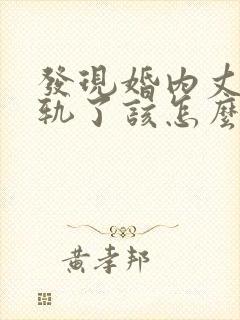 發現婚內丈
軌了該怎麼
黃孝邦